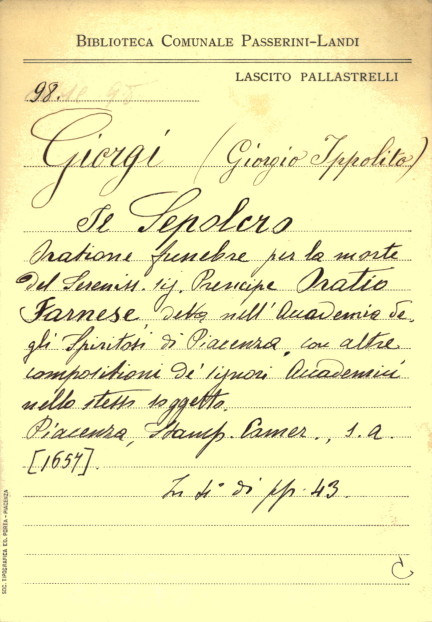 BIBLIOTECA COMUNALE PASSERINI-LANDI
LASCITO PALLASTRELLI
98.
Giorgi (Giorgio Ippolito)
Il Sepolcro
Oratione funebre per la morte
del Sereniss. sig. Prencipe Oratio
Farnese detta nell'Academia de-
gli Spiritosi di Piacenza, con altre
compositioni de' signori Accademici
nello stesso soggetto.
Piacenza, Stamp. Camer., s. a.
[1657].
In 4° di pp. 43.
C
SOC. TIPOGRAFICA ED. PORTA - PIACENZA